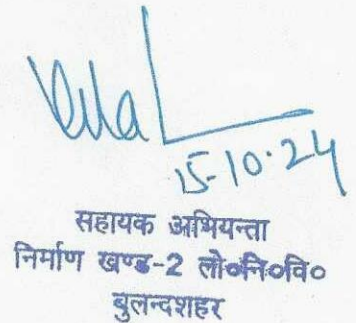 15-10-24
सहायक अभियन्ता
निर्माण खण्ड-2 लो०नि०वि०
बुलन्दशहर